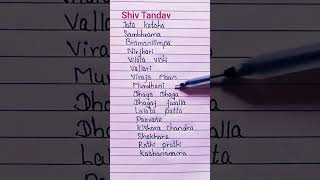 Shiv Tandav
Jata kataha
Sambhrama
Bramanillimpa
Nirjhari
Vilola vichi
Vallari
Viraja maan
Murdhani
Dhaga dhaga
Dhagaj jwalla
Lalata patta
Paavake
Kishora chandra
Shekhare
Rathi prathi
Kashanamama